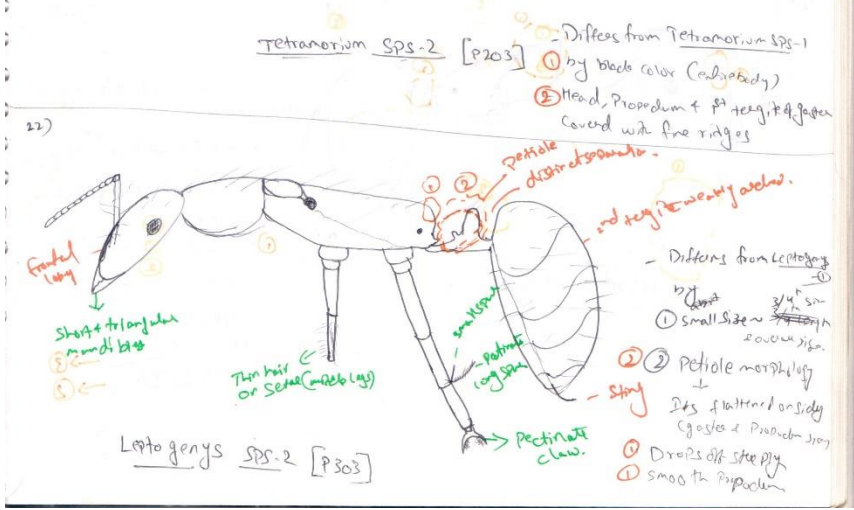 Tetramorium SPS-2 [P203]
- Differs from Tetramorium SPS-1
① by black color (entire body)
② Head, Propodum & 1st tergite of gaster
Coverd with fine ridges
22)
① ②
petiole
distinct separation.
2nd tergite weakly arched.
frontal
Short & triangular
mandibles
③ ←
⑤ ←
Thin hair
or Setae (middle legs)
small spur
Pectinate
long spur
Sting
Pectinate
claw.
Leptogenys SPS-2 [P303]
- Differs from Leptogenys
-①
by
① small size ~ 3/4th
② ② Petiole morphology
↓
Its flattened on sides
(gaster &
① Drops off steeply
① smooth Propodeum